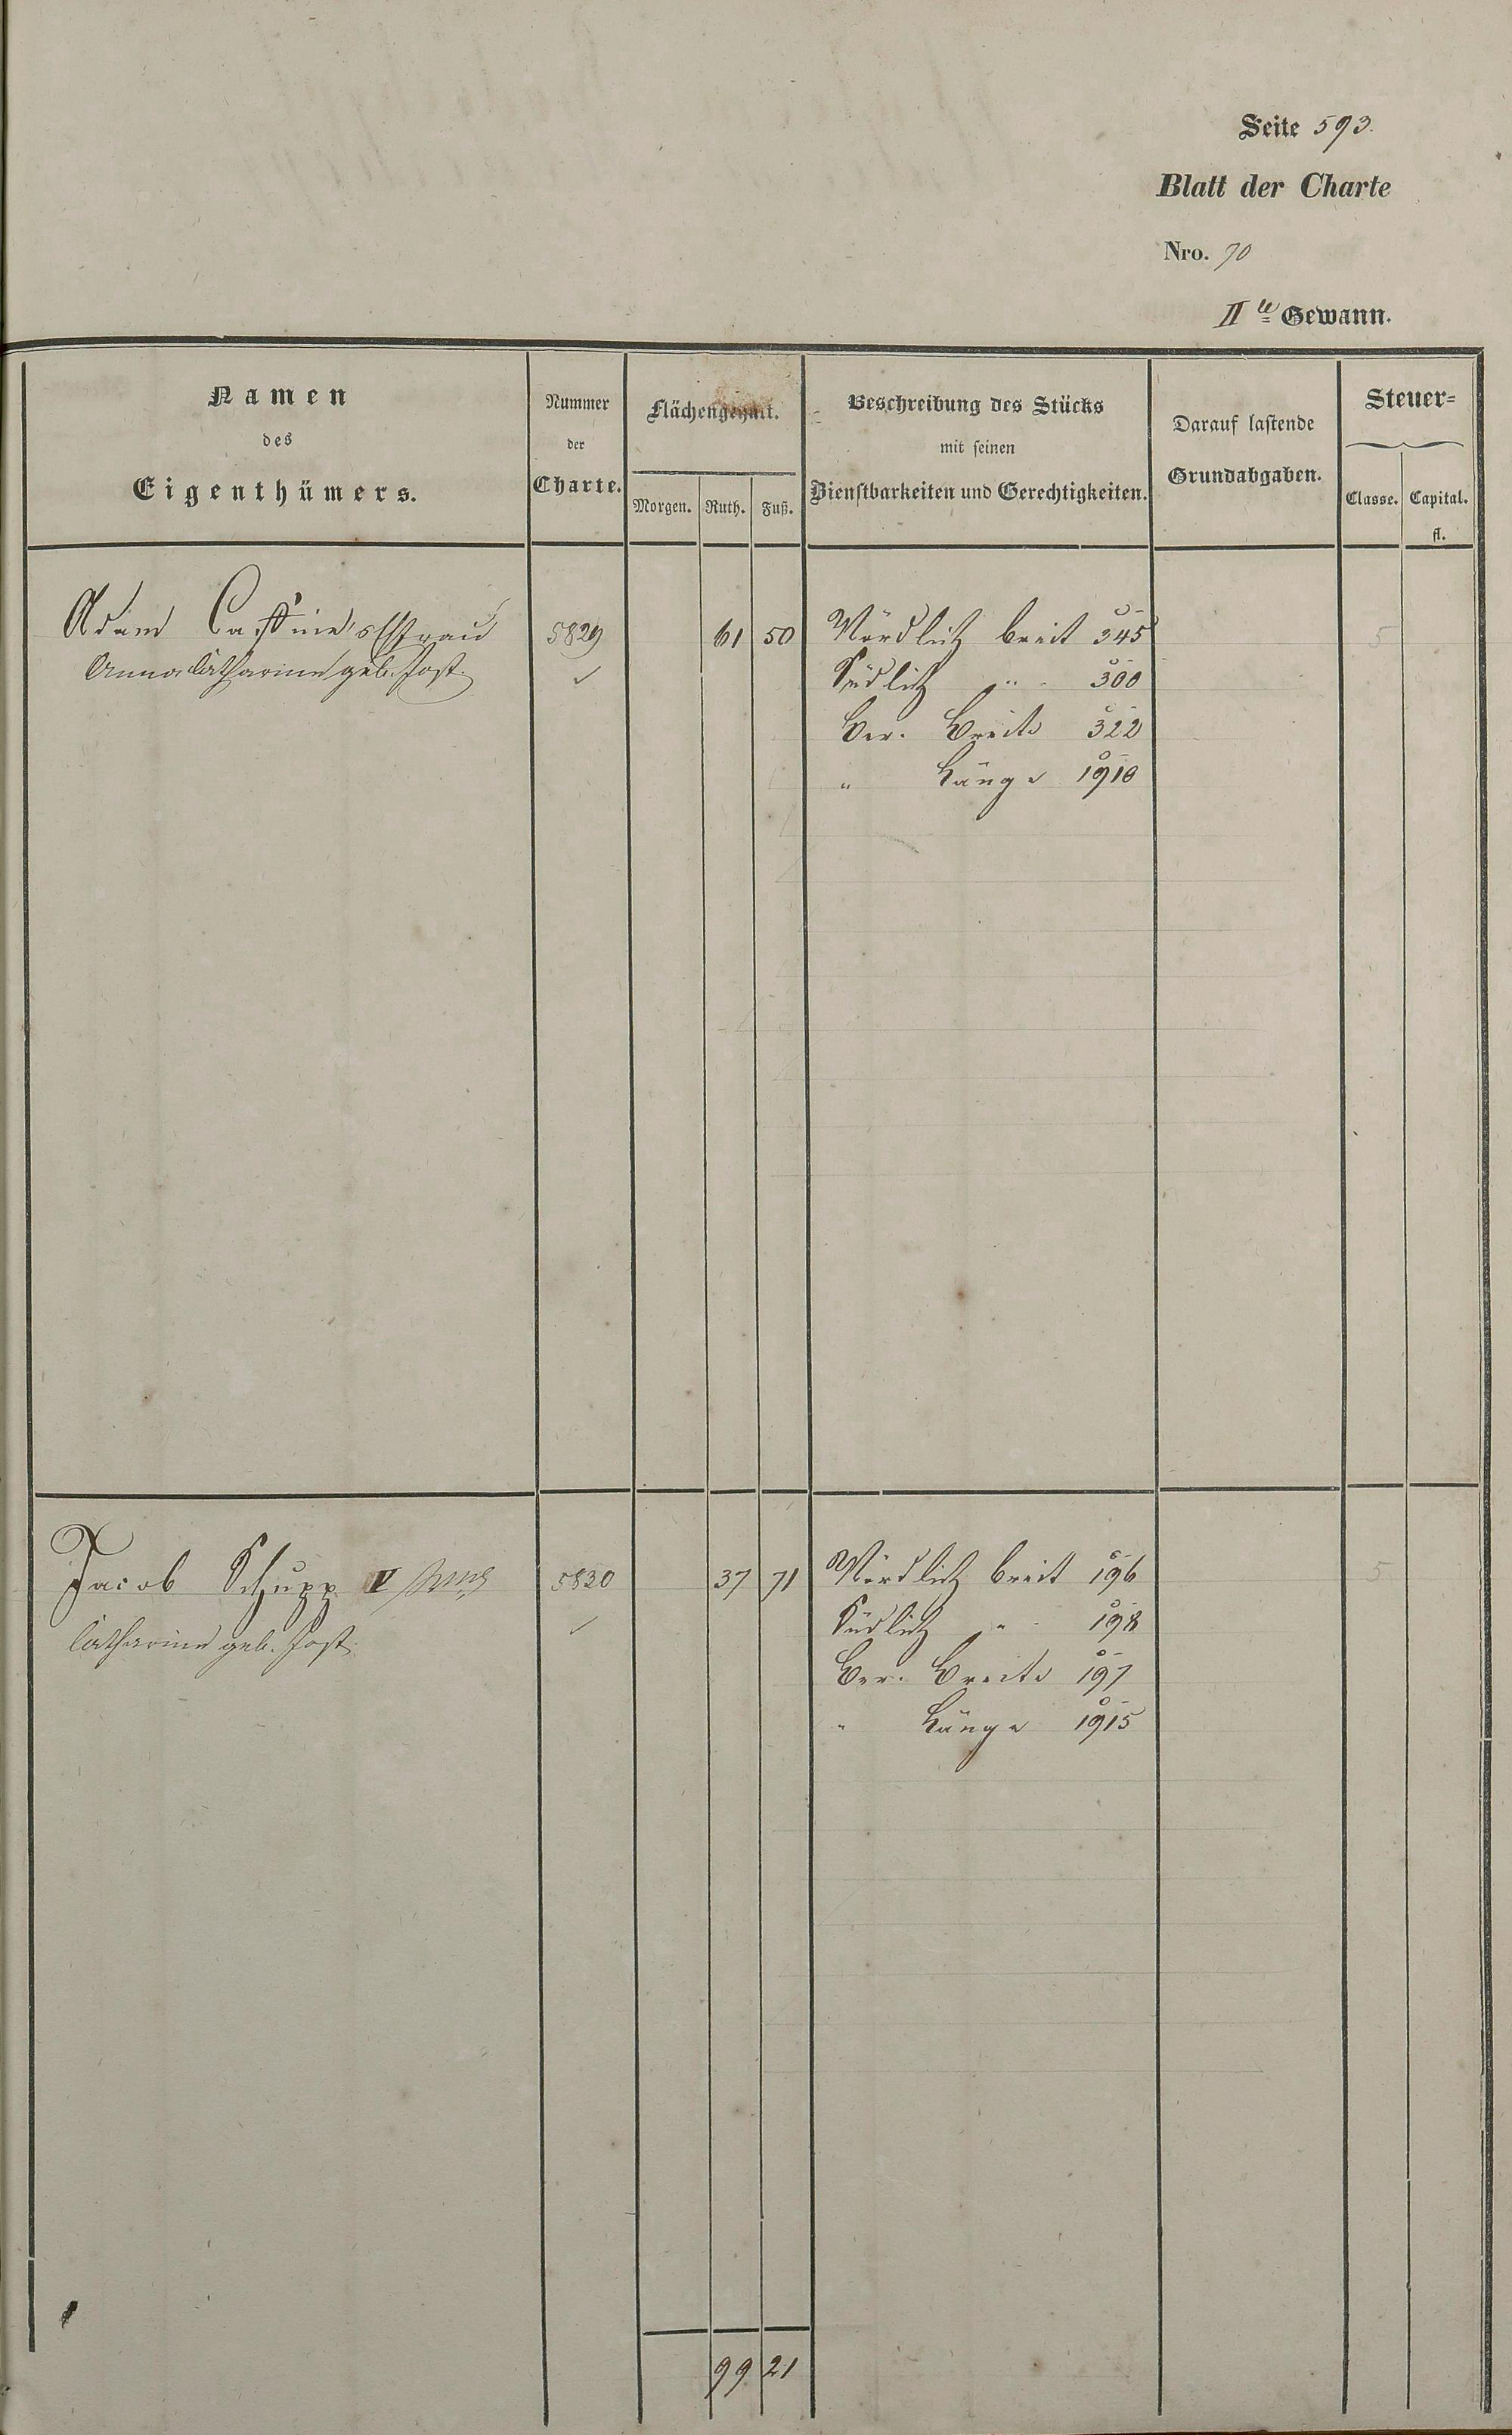 Seite 593.
Blatt der Charte
Nro. 70
II te Gewann.
Namen
des
Eigenthümers.
Nummer
der
Charte.
Flächengehalt.
Morgen. Ruth. Fuß.
Beschreibung des Stücks
mit seinen
Dienstbarkeiten und Gerechtigkeiten.
Darauf lastende
Grundabgaben.
Steuer=
Classe. Capital.
fl.
Adam Ehfrau 5829 61 50 Nördlich breit 345 5
Anna Catharine geb. Jost. ✓ Südlich " 300
Ber. Breite 322
" Länge 1910
Jacob Schupp V 5830 37 71 Nördlich breit 196 5
Catharine geb. Jost. ✓ Südlich " 198
Ber. Breite 197
" Länge 1915
99 21